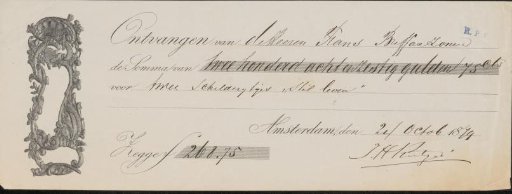 R.P.
Ontvangen van de Heeren Frans Buffa & Zonen
de Somma van twee honderd acht en zestig gulden 75 cts
voor twee Schilderytjes "Stil leven"
Amsterdam, den 21 Octob 1874
Zegge f 268.75